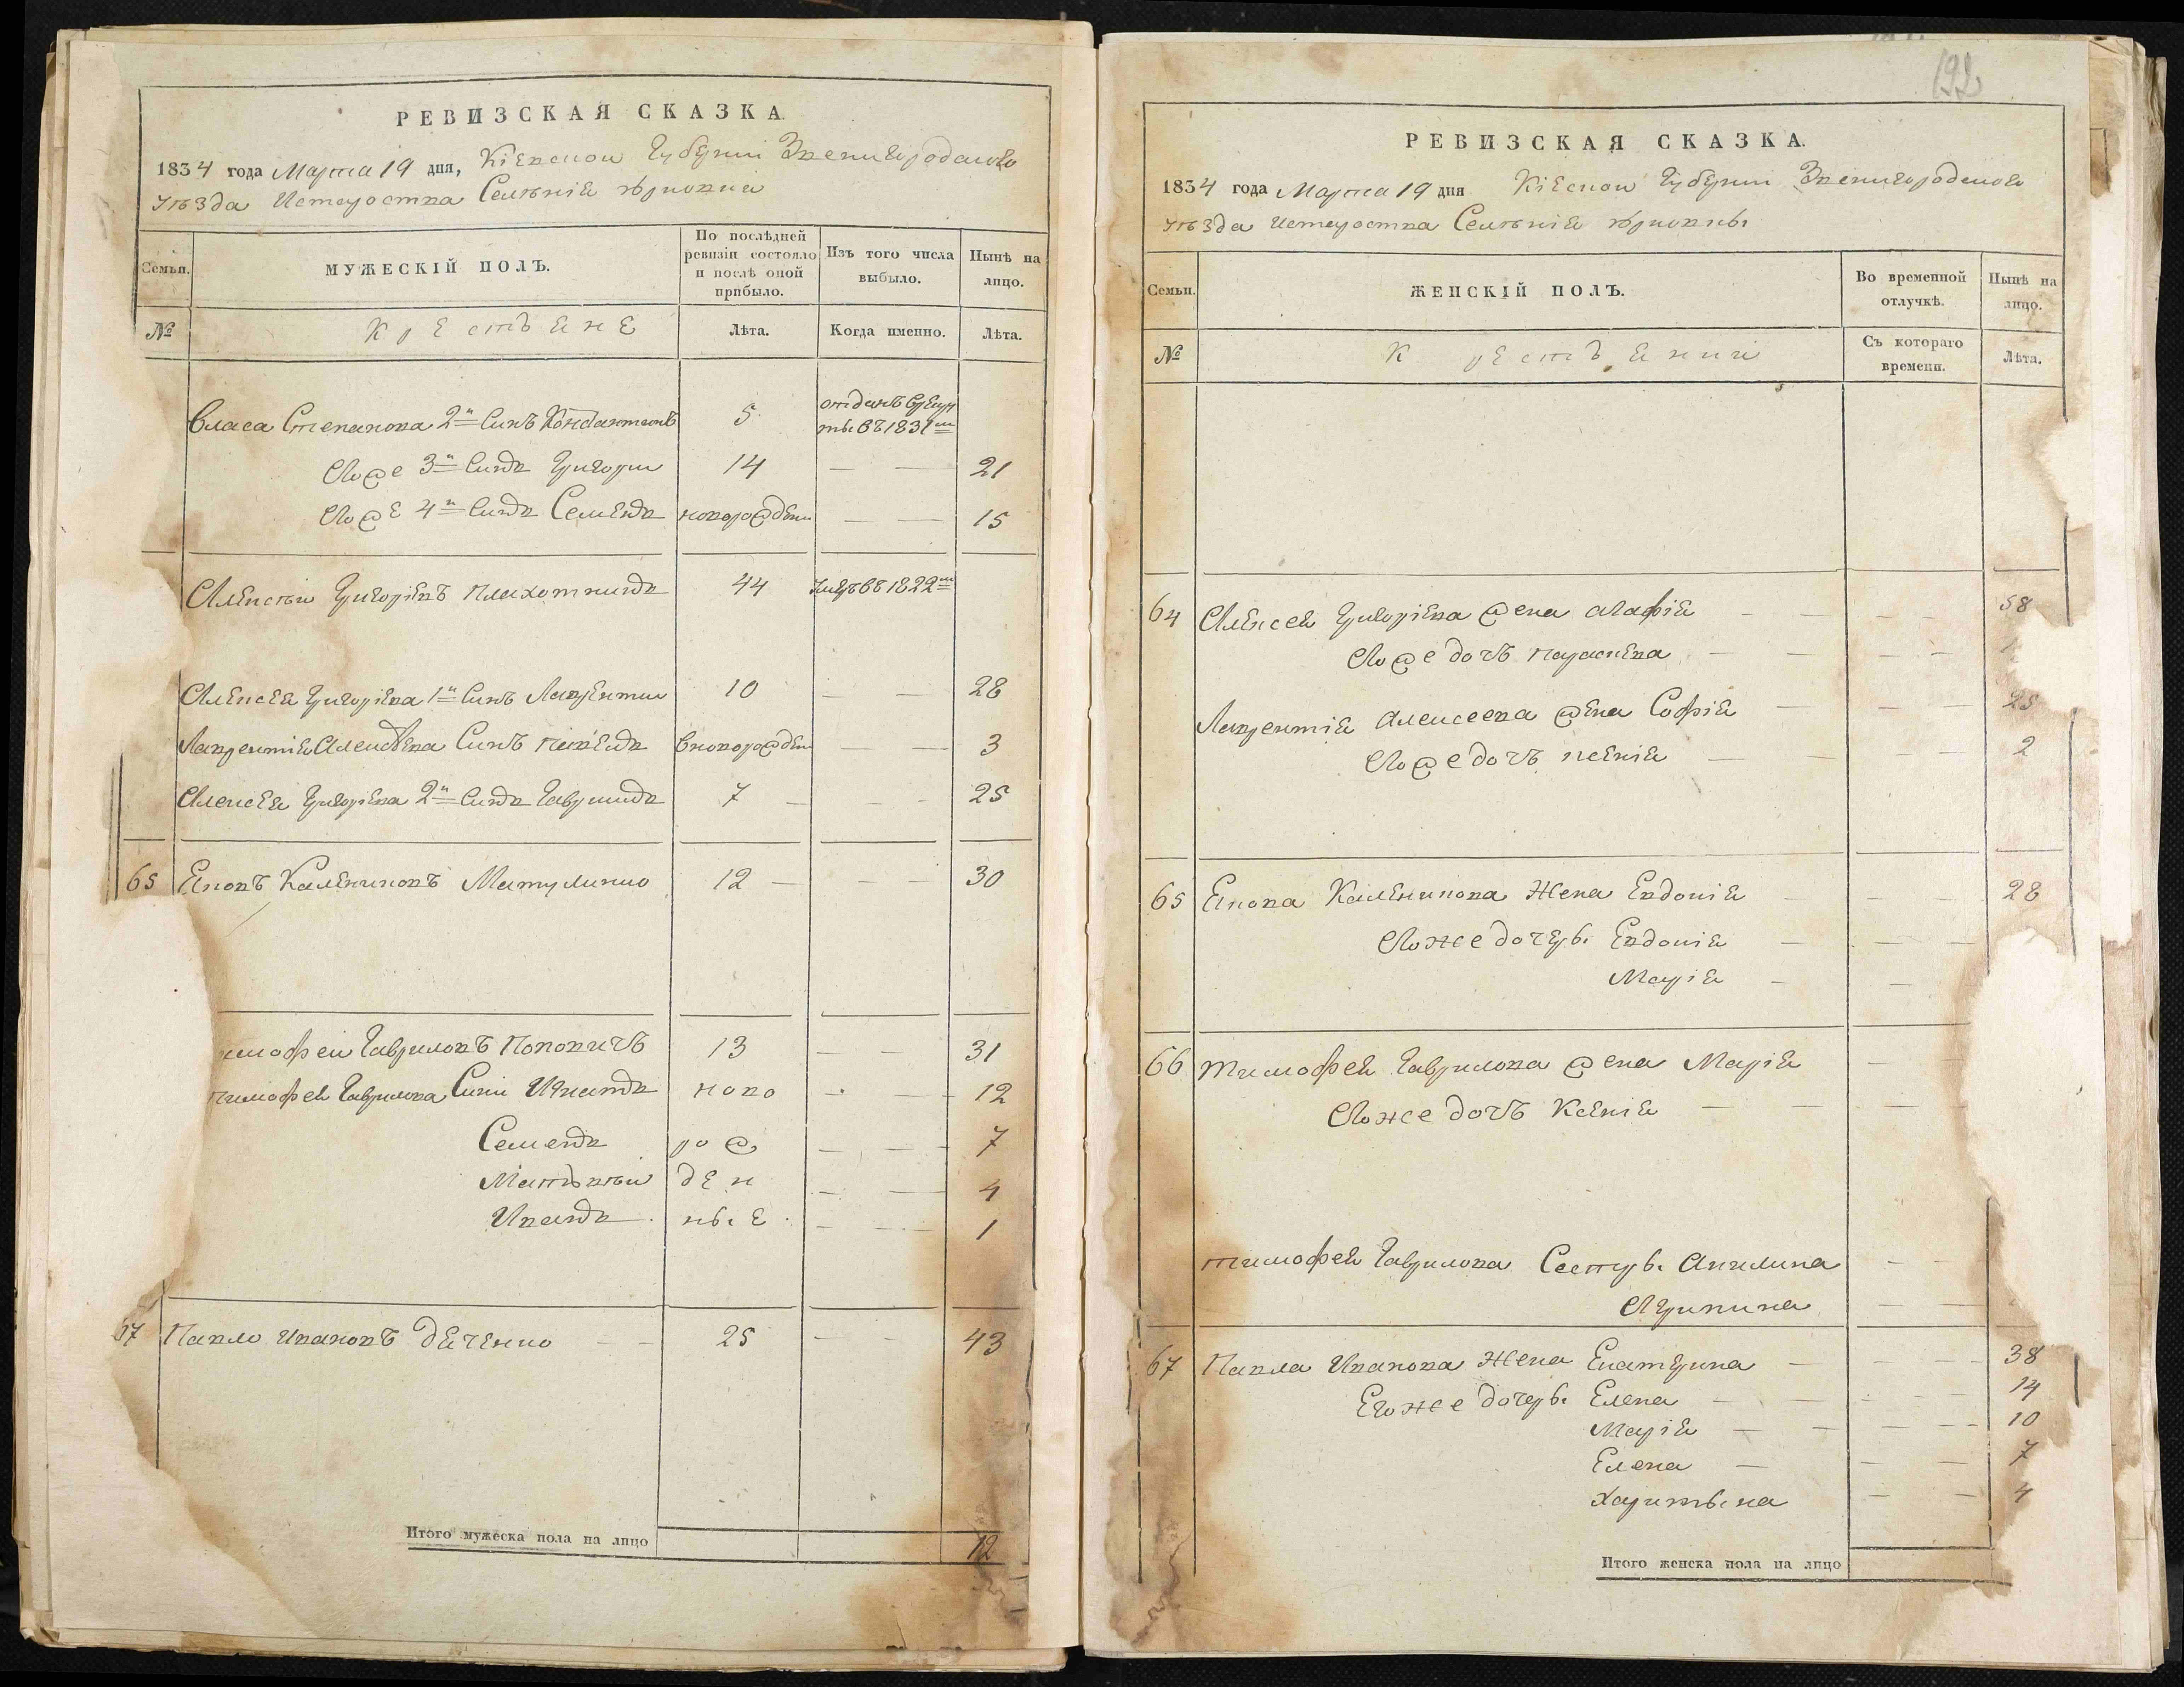 РЕВИЗСКАЯ СКАЗКА.
1834 года Марта 19 дня, Кіевской Губерніи Звенигородскаго
уѣзда
Семьи.
МУЖЕСКІЙ ПОЛЪ.
По послѣдней ревизіи состояло и послѣ оной прибыло.
Изъ того числа выбыло.
Нынѣ на лицо.
№
Крестьяне
Лѣта.
Когда именно.
Лѣта.
Власа Степанова 2й Синъ Констаптинъ 5 отданъ врекру
ты въ 1831м
Его же 3й Синъ Григории 14 21
Его же 4й Синъ Семенъ новорожден 15
Алексѣи Григоріевъ 44 Умеръ въ 1822м
Алексея Григоріева 1й Синъ Лаврентии 10 28
Лаврентія Алексѣева Синъ вноворожден 3
Алексея Григоріева 2й Синъ Гаврiилъ 7 25
65 Яковъ Калениковъ 12 30
имофеи Гавриловъ Поповичъ 13 31
тимофея Гаврилова Сини Игнатъ ново 12
Семенъ рож 7
Матвѣи ден 4
Иванъ ные 1
67 Павло Ивановъ Дяченко 25 43
Итого мужеска пола на лицо 12
192
РЕВИЗСКАЯ СКАЗКА.
1834 года Марта 19 дня Кіеской Губерніи Звенигородскаго
уѣзда
Семьи.
ЖЕНСКІЙ ПОЛЪ.
Во временной отлучкѣ.
Нынѣ на лицо.
№
Крестьянки
Съ котораго времени.
Лѣта.
64 Алексея Григоріева жена агафія 58
Его же дочъ параскева
Лаврентія Алексеева жена Софія 25
Его же дочъ 2
65 Якова Каленикова Жена Евдокія 28
Его же дочеры Евдокія
Марія
66 Тимофея Гаврилова жена Марія
Его же дочъ Ксенія
тимофея Гаврилова Сестры Акилина
Агрипина
67 Павла Иванова Жена Екатерина 38
Его же дочеры Елена 14
Марія 10
Елена 7
Харитына 4
Итого женска пола на лицо